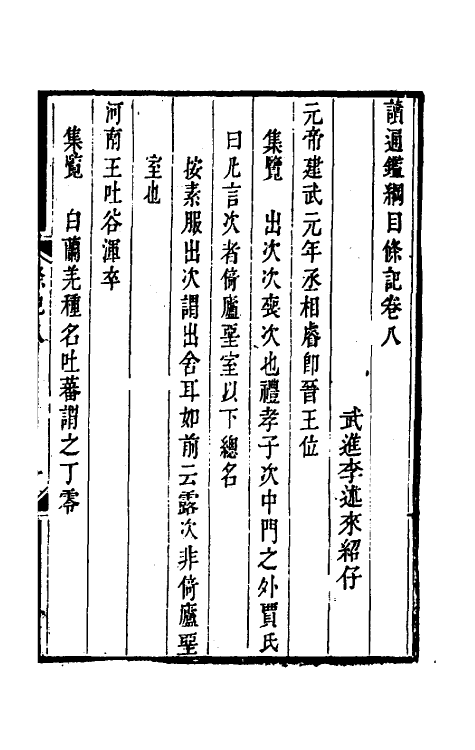 讀通鑑綱目條記卷八
武進李述來紹仔
元帝建武元年丞相睿卽晉王位
集覽　出次次喪次也禮孝子次中門之外賈氏
曰凡言次者倚廬堊室以下總名
按素服出次謂出舍耳如前云露次非倚廬堊
室也
河南王吐谷渾卒
集覽　白蘭羌種名吐蕃謂之丁零